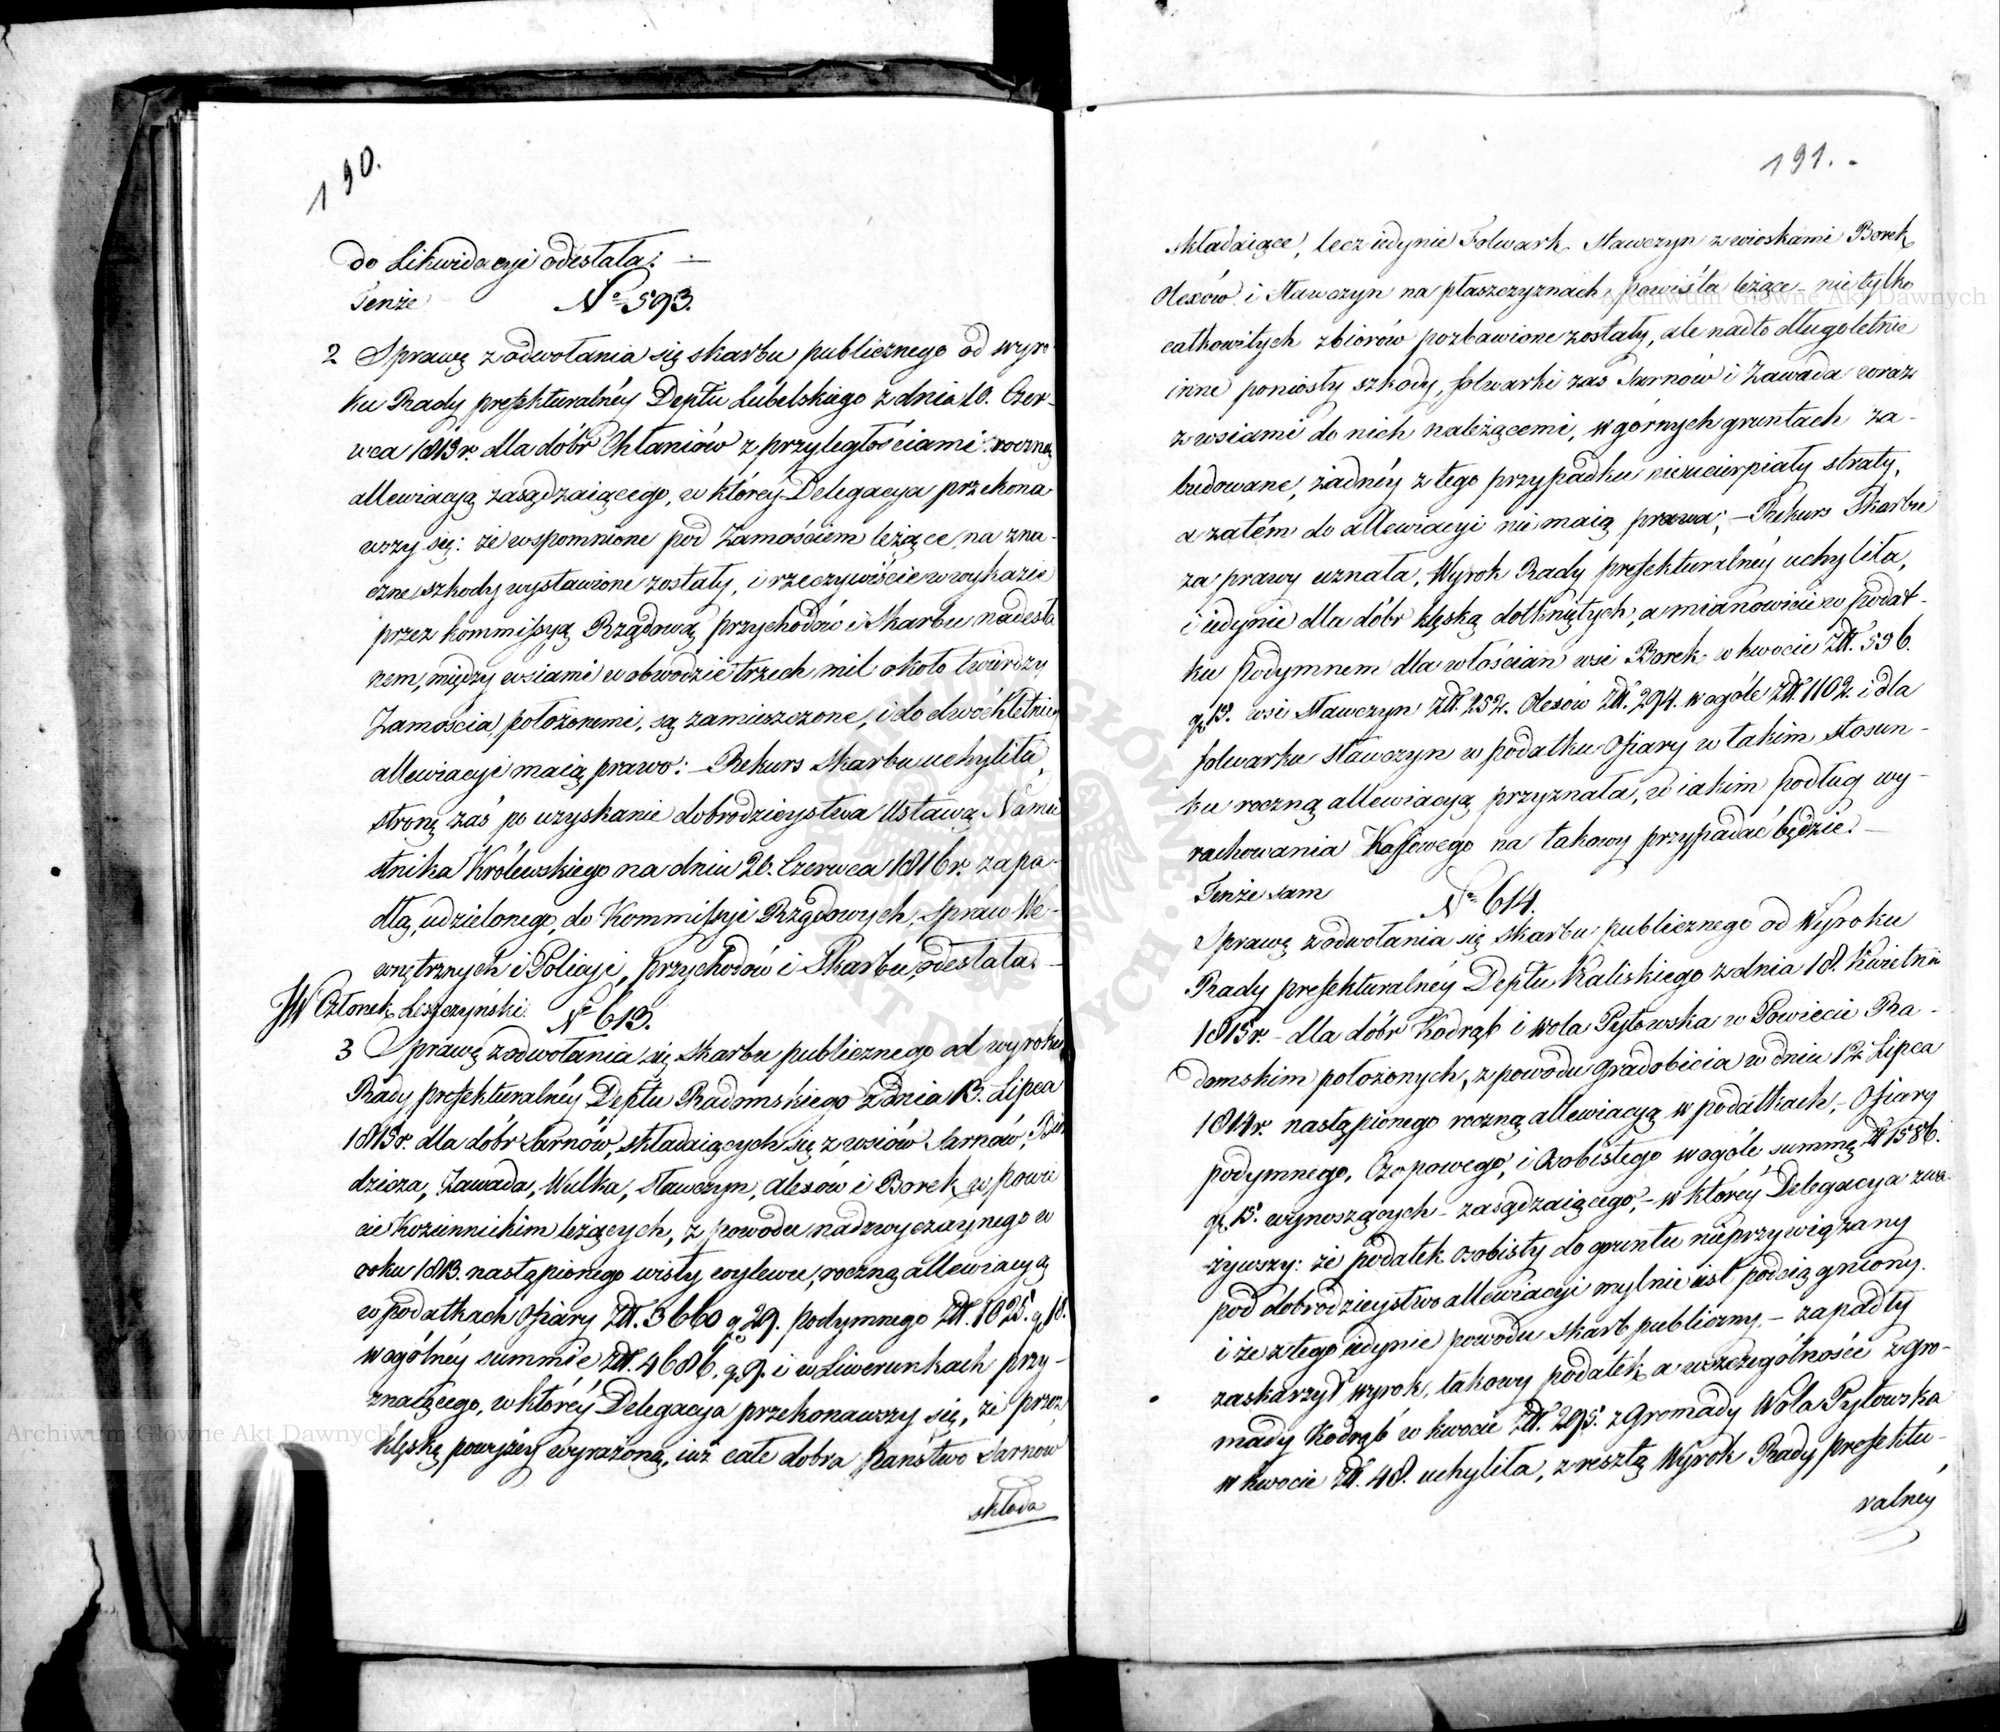 190.
do Likwidacyi odesłała: —
Tenże No 593.
2 Sprawę z odwołania się skarbu publicznego od wyro-
ku Rady prefekturalnéy Deptu Lubelskiego z dnia 10. Czer-
wca 1813r. dla dóbr Chłaniów z przyległościami roczną
allewiacyą zasądzaiącego, w któréy Delegacya przekona
wszy się: że wspomnione pod Zamościem leżące, na zna-
czne szkody wystawione zostały, i rzeczywiście w wykazie
przez kommissyą Rządową przychodów i Skarbu nadesła
nem, między wsiami w obwodzie trzech mil około twierdzy
Zamościa położonemi, są zamieszczone, i do dwóchletniey
allewiacyi maią prawo: – Rekurs Skarbu uchyliła,
stronę zaś po uzyskanie dobrodzieystwa Ustawą Namie
stnika Królewskiego na dniu 20. Czerwca 1816r. zapa-
dłą, udzielonego, do Kommissyi Rządowych, Spraw We-
wnętrznych i Policyi, przychodów i Skarbu, odesłała. —
JW Członek Leszczyński. No 613.
3 Sprawę z odwołania się Skarbu publicznego od wyroku
Rady prefekturalnéy Deptu Radomskiego z dnia 13. Lipca
1815r. dla dóbr Sarnów, składaiących się z wsiów Sarnów,
dzicza, Zawada, Wulka, Sławczyn, Olexów i Borek w powie
cie Kozienickim leżących, z powodu nadzwyczaynego w
roku 1813. nastąpionego wisły wylewu, roczną allewiacyą
w podatkach Ofiary Złł. 3660 gr 29. podymnego Złł. 1025. gr 10.
w ogólnéy summie Złł. 4686. gr. 9. i w Liwerunkach przy-
znaiącego, w któréy Delegacya przekonawszy się, że przez
klęskę powyżéy wyrażoną, iuż całe dobra Państwo Sarnow
składa
191.
składaiące, lecz iedynie Folwark Sławczyn z wioskami Borek
Olexów i Sławczyn na płaszczyznach powiśla leżące – nietylko
całkowitych zbiorów pozbawione zostały, ale nadto długoletnie
inne poniosły szkody, folwarki zaś Sarnów i Zawada wraz
z wsiami do nich należącemi, w górnych gruntach za-
budowane, żadnéy z tego przypadku nieucierpiały straty,
a zatém do allewiacyi nie maią prawa; – Rekurs Skarbu
za prawy uznała, Wyrok Rady prefekturalnéy uchyliła,
i iedynie dla dóbr klęską dotkniętych, a mianowicie w podat-
ku Podymnem dla włościan wsi Borek w kwocie Złł. 556.
gr 15. wsi Sławczyn Złł. 252. Olexów Złł. 294. w ogóle Złł. 1102. i dla
folwarku Sławczyn w podatku Ofiary w takim stosun-
ku roczną allewiacyą przyznała, w iakim podług wy-
rachowania Kassowego na takowy przypadać będzie. —
Tenże sam No 614.
Sprawę z odwołania się skarbu publicznego od Wyroku
Rady prefekturalnéy Deptu Kaliskiego z dnia 18. Kwietnia
1815r. – dla dóbr Kodrąb i Wola Pytowska w Powiecie Ra-
domskim położonych, z powodu gradobicia w dniu 12 Lipca
1814r. nastąpionego roczną allewiacyą w podatkach, – Ofiary
podymnego, Czopowego, i Osobistego w ogóle summę Zł 1586.
gr. 15. wynoszących – zasądzaiącego, – w któréy Delegacya zwa-
żywszy: że podatek osobisty do gruntu nieprzywiązany
pod dobrodzieystwo allewiacyi mylnie iest podciągniony.
i że z tego iedynie powodu skarb publiczny, – zapadły
zaskarżył wyrok, takowy podatek, a wszczególności z gro-
mady Kodrąb w kwocie Złł. 295. z gromady Wola Pytowska
w kwocie Złł. 48. uchyliła, z resztą Wyrok Rady prefektu-
ralnéy